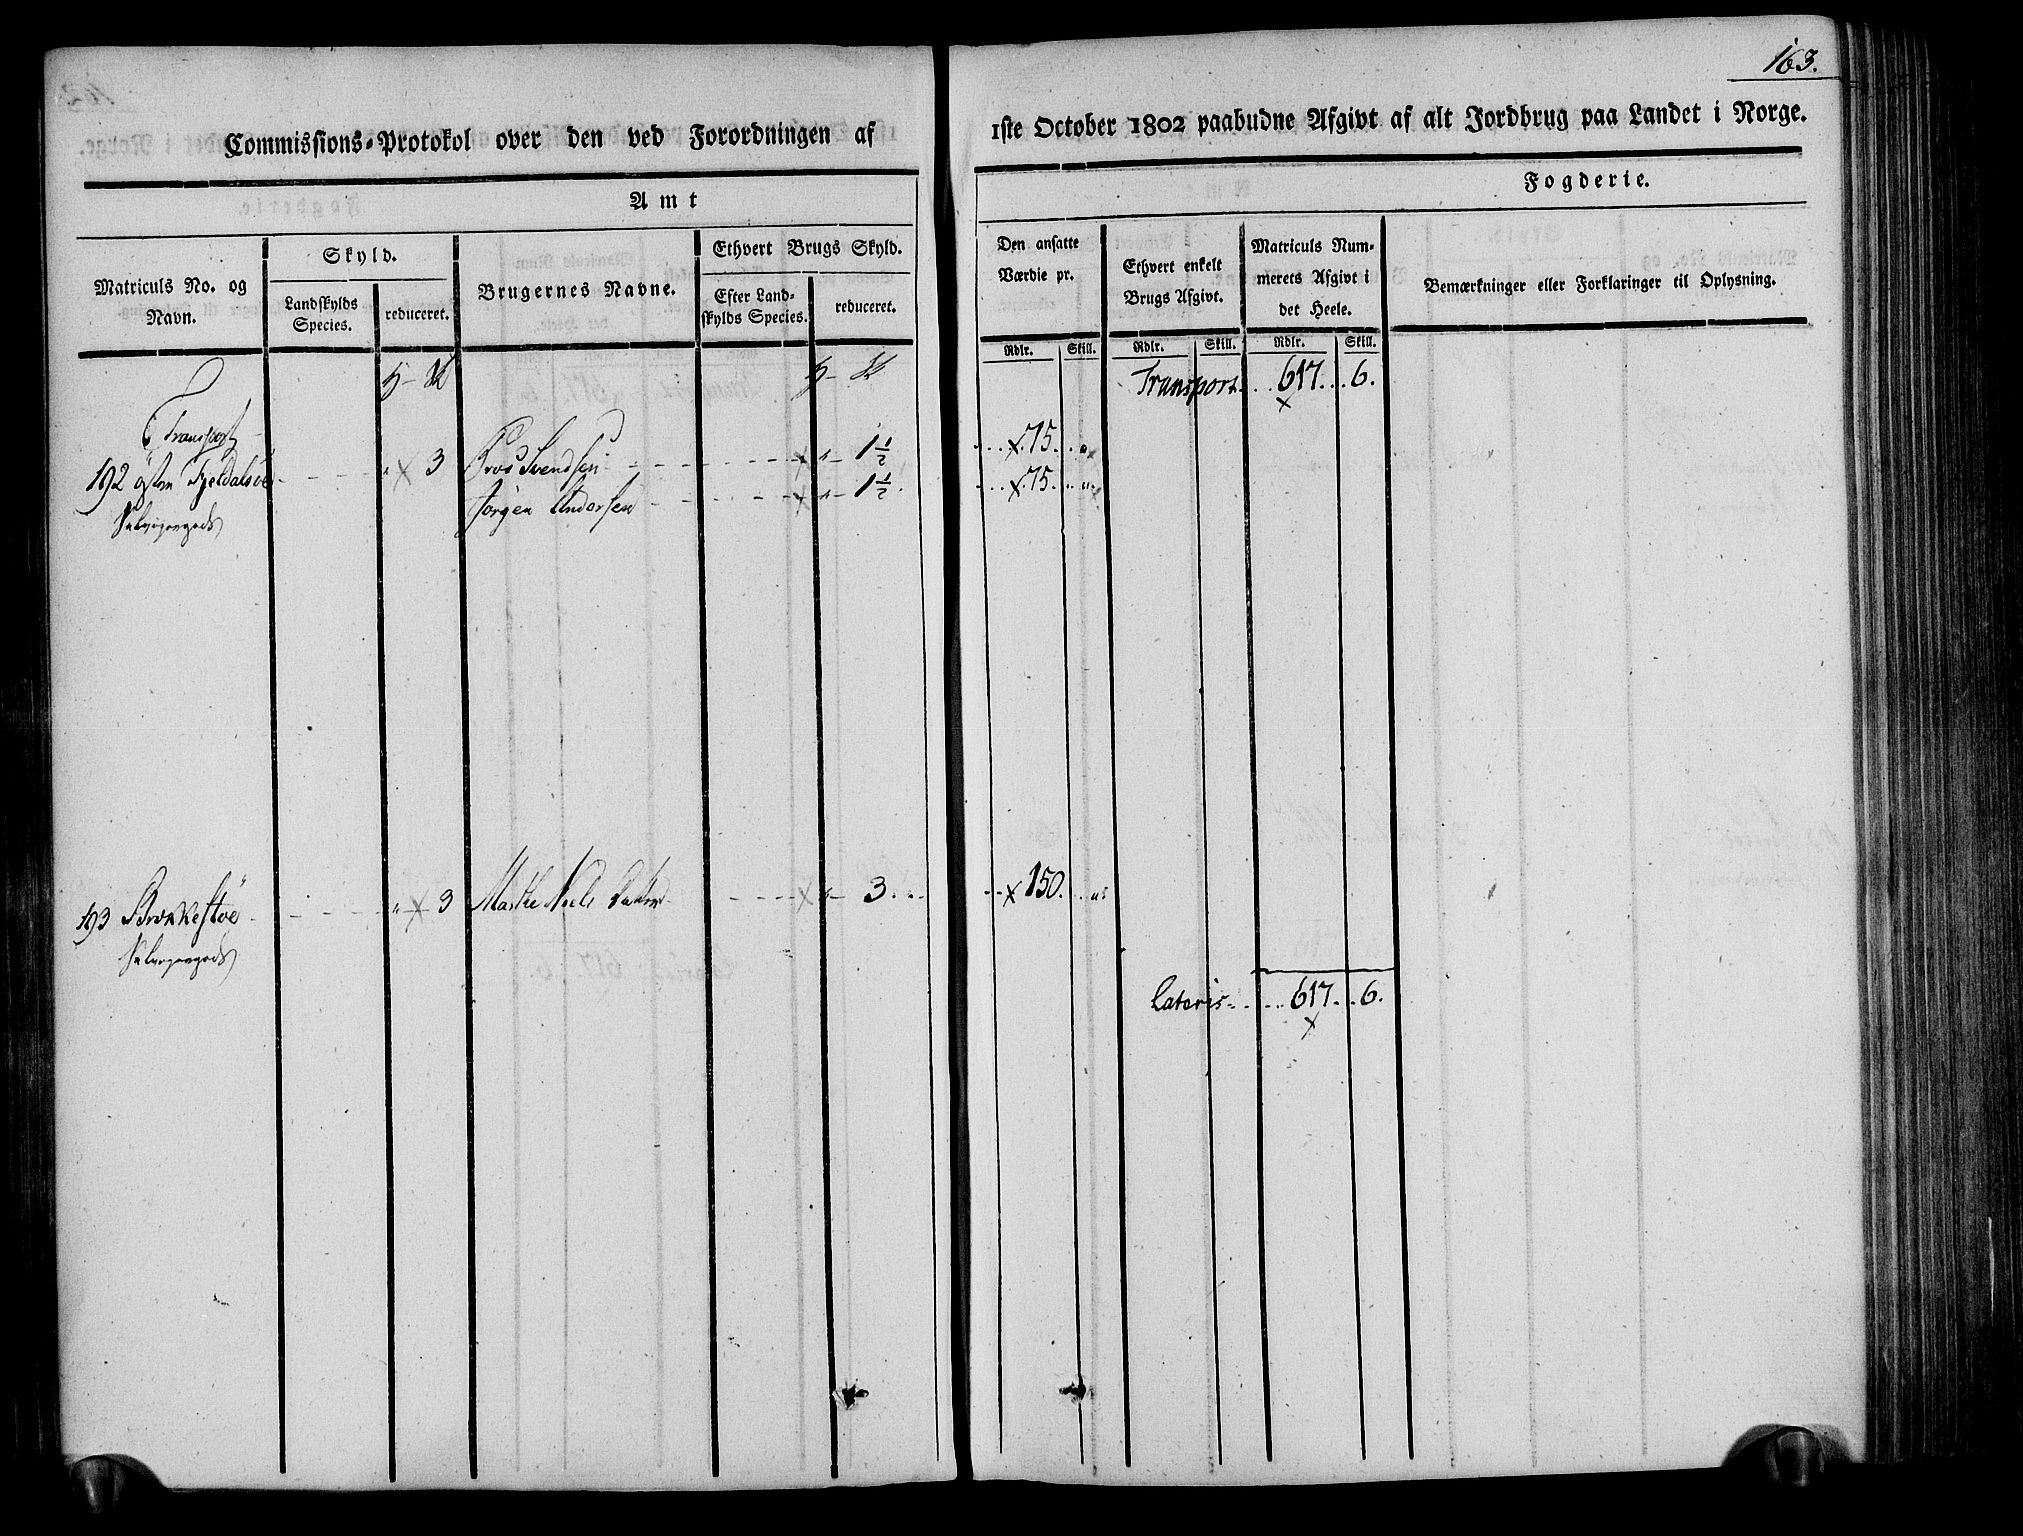 163.
Commissions-Protokol over den ved Forordningen af 1ste October 1802 paabudne Afgivt af alt Jordbrug paa Landet i Norge.
Amt Fogderie.
Matriculs No. og Navn.
Skyld.
Landskylds Species.
reduceret.
Brugernes Navne.
Ethvert Brugs Skyld.
Efter Landskylds Species.
reduceret.
Den ansatte Værdie pr.
Ethvert enkelt Brugs Afgivt.
Matriculs Nummerets Afgivt i det Heele.
Bemærkninger eller Forklaringer til Oplysning.
Rdlr. Skill. Rdlr. Skill. Rdlr. Skill.
Transport 617. 6.
Transport
192 3 Svendsen 1½ 75.
Jørgen Andersen 1½ 75.
Selveyergods
193 3 Niels 3. 150.
Selveyergods
Lateris 617. 6.